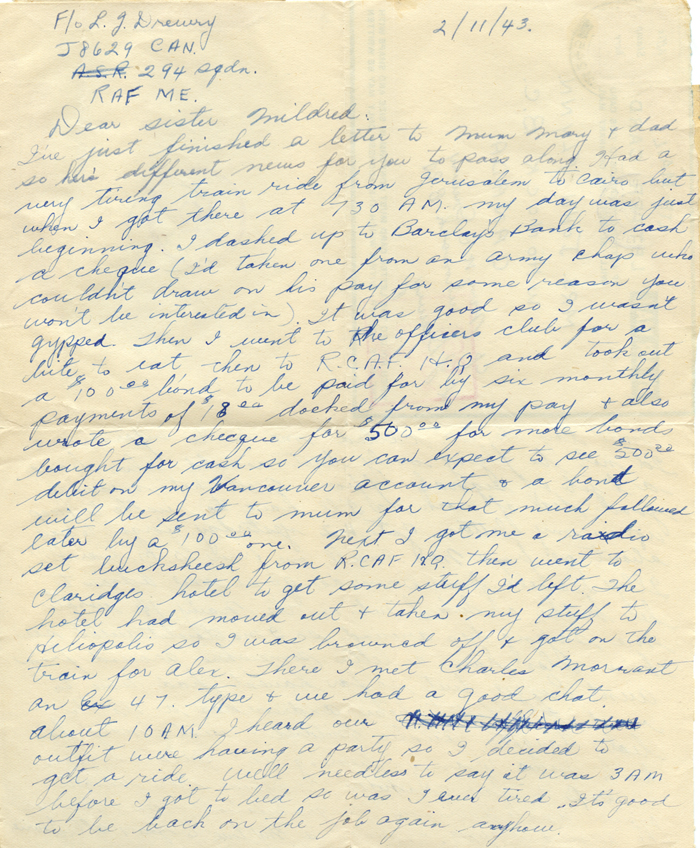 F/o L. J. Drewry
2/11/43.
J8629 CAN.
A.S.R. 294 sqdn.
RAF ME.
Dear sister Mildred.
I've just finished a letter to Mum Mary & dad
so here's different news for you to pass along. Had a
very tiring train ride from Jerusalem to Cairo but
when I got there at 730 A.M. my day was just
beginning. I dashed up to Barclay's Bank to cash
a cheque (I'd taken one from an army chap who
couldn't draw on his pay for some reason you
won't be interested in). It was good so I wasn't
gypped. Then I went to the officers club for a
bite to eat then to R.C.A.F. H.Q and took out
a $100.00 bond to be paid for by six monthly
payments of $18.00 docked from my pay & also
wrote a checque for $500.00 for more bonds
bought for cash so you can expect to see $500.00
debit on my Vancouver account & a bond
will be sent to mum for that much followed
later by a $100.00 one. Next I got me a radio
set bucksheesh from R.C.A.F H.Q. then went to
Claridges hotel to get some stuff I'd left. The
hotel had moved out & taken my stuff to
Heliopolis so I was browned off & got on the
train for Alex. There I met Charles Morrant
an Ex 47. type & we had a good chat.
about 10 AM I heard our
outfit were having a party so I decided to
get a ride. Well needless to say it was 3 AM
before I got to bed so was I ever tired. It's good
to be back on the job again anyhow.